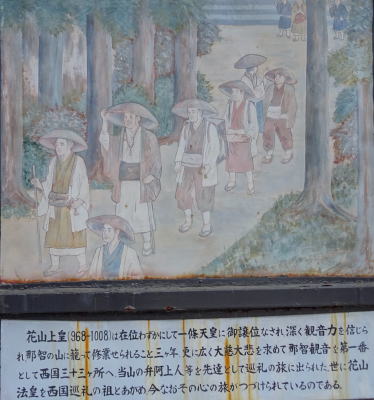 花山上皇(968-1008)は在位わずかにして一條天皇に御譲位なされ深く観音力を信じら
れ那智の山に籠って修業せられること三ヶ年 更に広く大慈大悲を求めて那智観音を第一番
として西国三十三ヶ所へ、当山の弁阿上人等を先達として巡礼の旅に出られた。世に花山
法皇を西国巡礼の祖とあがめ今なおその心の旅がつづけられているのである。